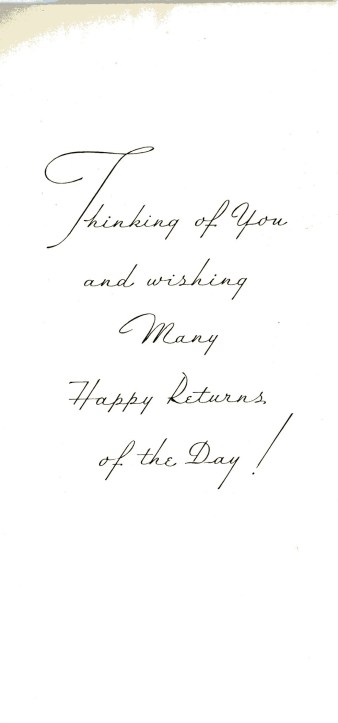 Thinking of You
and wishing
Many
Happy Returns
of the Day!